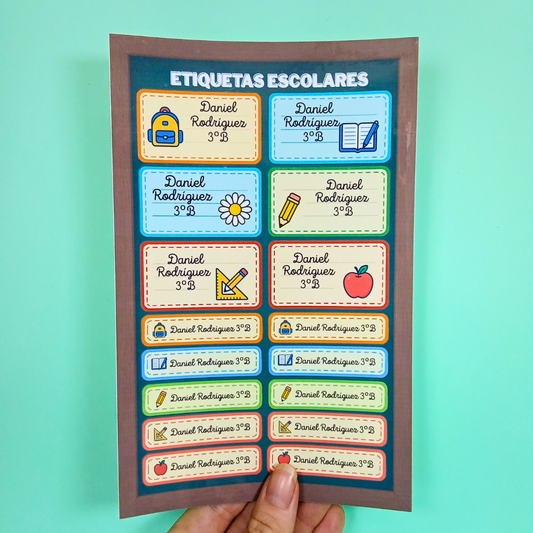 ETIQUETAS ESCOLARES
Daniel
Rodríguez
3°B
Daniel
Rodríguez
3°B
Daniel
Rodríguez
3°B
Daniel
Rodríguez
3°B
Daniel
Rodríguez
3°B
Daniel
Rodríguez
3°B
Daniel Rodríguez 3°B
Daniel Rodríguez 3°B
Daniel Rodríguez 3°B
Daniel Rodríguez 3°B
Daniel Rodríguez 3°B
Daniel Rodríguez 3°B
Daniel Rodríguez 3°B
Daniel Rodríguez 3°B
Daniel Rodríguez 3°B
Daniel Rodríguez 3°B